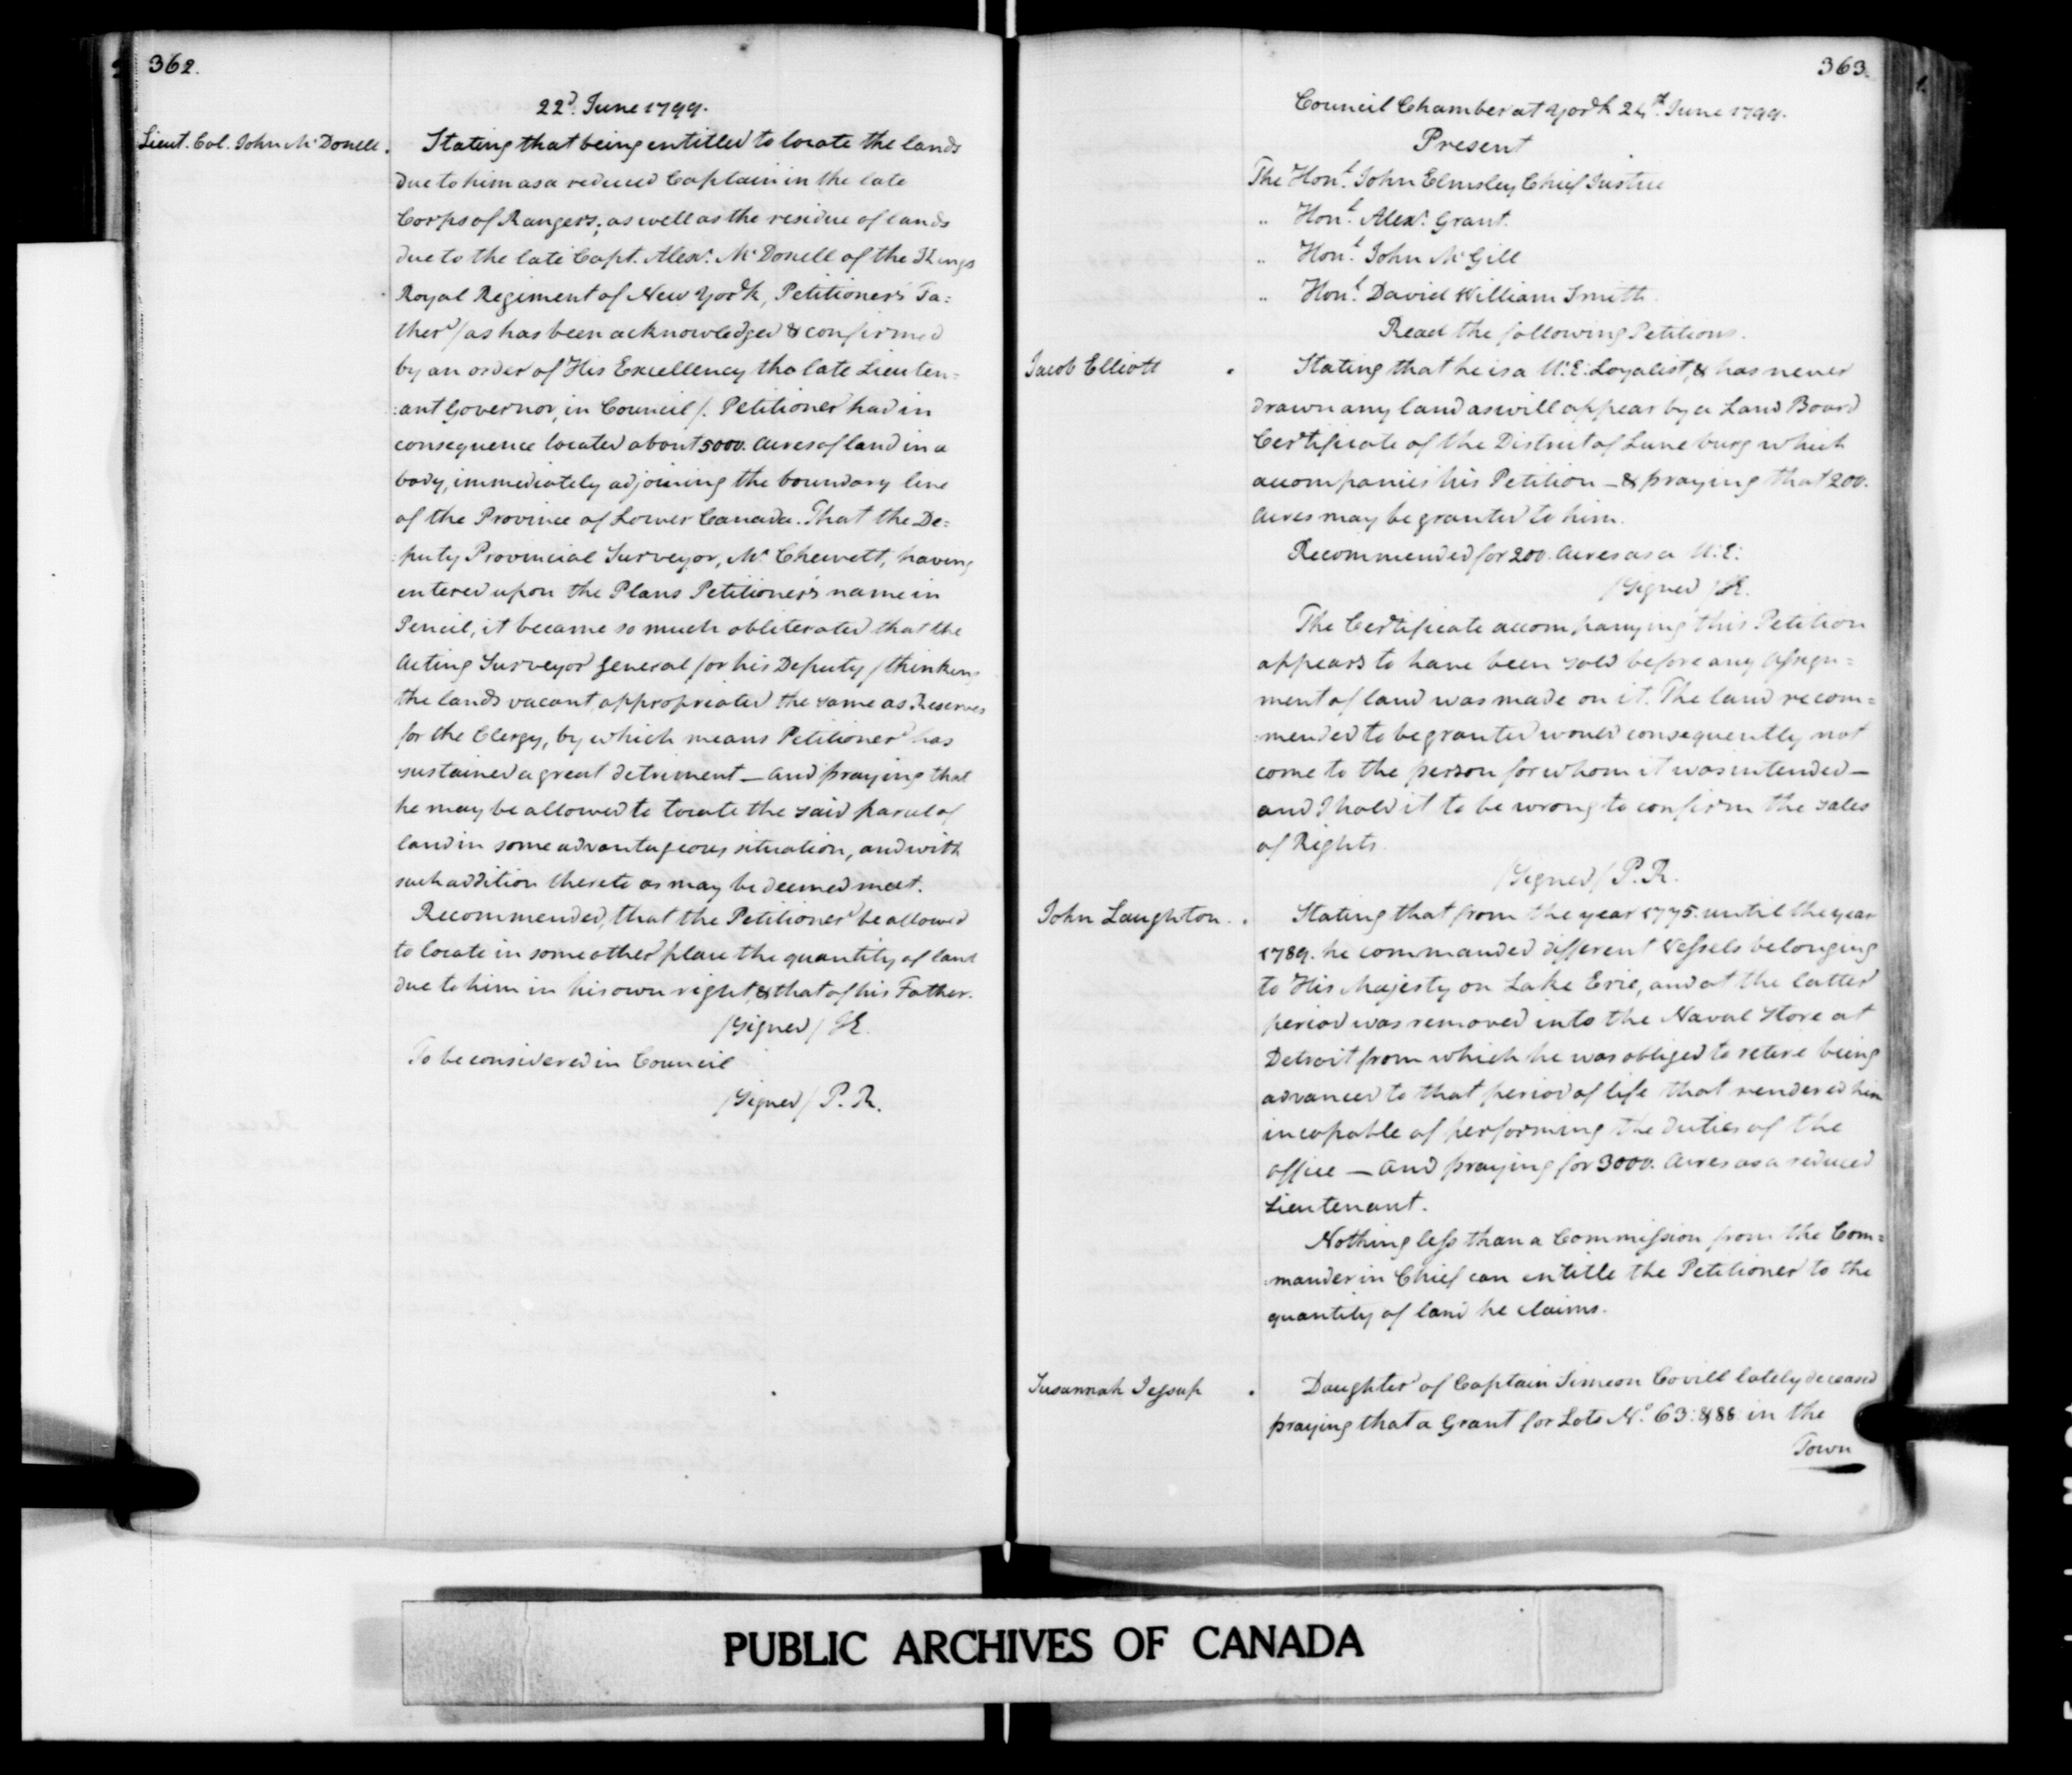 362.
22d. June 1799.
Lieut. Col. John McDonell. Stating that being entitled to locate the lands
due to him as a reduced Captain in the late
Corps of Rangers; as well as the residue of lands
due to the late Capt. Alexr. McDonell of the Kings
Royal Regiment of New York, Petitioner's Fa=
ther / as has been acknowledged & confirmed
by an order of His Excellency the late Lieuten=
:ant Governor, in Council /. Petitioner had in
consequence located about 5000. Acres of land in a
body, immediately adjoining the boundary line
of the Province of Lower Canada. That the De=
:puty Provincial Surveyor, Mr Chewett, having
entered upon the Plans Petitioner's name in
Pencil, it became so much obliterated that the
Acting Surveyor General / or his Deputy / thinking
the lands vacant, appropriated the same as Reserves
for the Clergy, by which means Petitioner has
sustained a great detriment — and praying that
he may be allowed to locate the said parcel of
land in some advantageous situation, and with
such addition thereto as may be deemed meet.
Recommended, that the Petitioner be allowed
to locate in some other place the quantity of land
due to him in his own right, & that of his Father.
/Signed/ JE.
To be considered in Council
/Signed/ P. R.
363.
Council Chamber at York 24th. June 1799.
Present
The Honl. John Elmsley Chief Justice
" Honl. Alexr. Grant.
" Honl. John McGill
" Honl. David William Smith.
Read the following Petitions.
Jacob Elliott . Stating that he is a U.E: Loyalist, & has never
drawn any land as will appear by a Land Board
Certificate of the District of Luneburg which
accompanies his Petition — & praying that 200.
Acres may be granted to him.
Recommended for 200. Acres as a U:E:
/Signed/ JE.
The Certificate accompanying this Petition
appears to have been sold before any Assign=
ment of land was made on it. The land recom=
:mended to be granted would consequently not
come to the person for whom it was intended —
and I hold it to be wrong to confirm the sales
of Rights.
/Signed/ P. R.
John Laughton . Stating that from the year 1775. until the year
1789. he commanded different Vessels belonging
to His Majesty on Lake Erie, and at the latter
period was removed into the Naval Store at
Detroit from which he was obliged to retire being
advanced to that period of life that rendered him
incapable of performing the duties of the
office — and praying for 3000. Acres as a reduced
Lieutenant.
Nothing less than a Commission from the Com=
:mander in Chief can entitle the Petitioner to the
quantity of land he claims.
Susannah Jessup . Daughter of Captain Simeon Covill lately deceased
praying that a Grant for Lots No. 63: & 88 in the
Town
PUBLIC ARCHIVES OF CANADA